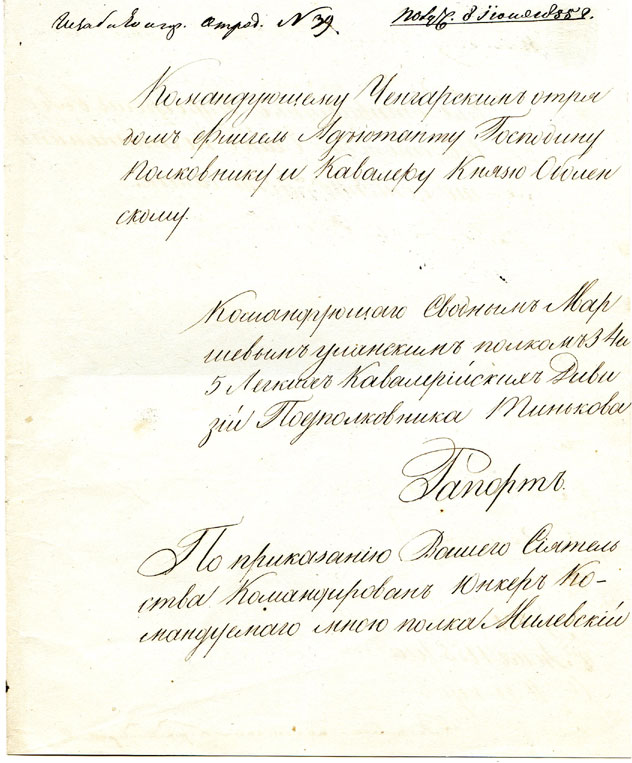 Штаба отряд. N 39 Получ. 8 Iюня 855 г.
Командующему Ченгарскимъ отря
домъ Флигель Адъютанту Господину
Полковнику и Кавалеру Князю Оболен
скому.
Командующаго Своднымъ Мар
шевымъ уланскимъ полкомъ 3 4 и
5 Легкихъ Кавалерiйскихъ Диви
зiй Подполковника Тинькова
Рапортъ.
По приказанiю Вашего Сiятель
ства Командированъ Юнкеръ Ко-
мандуемаго мною полка Милевскiй